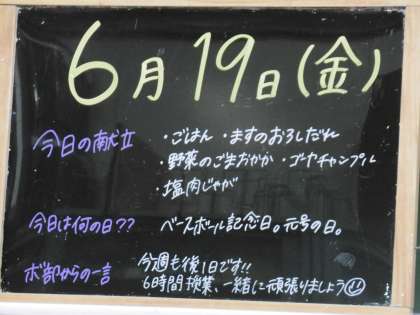 6月19日(金)
今日の献立
・ごはん ・ますのおろしだれ
・野菜のごまおかか ・ゴーヤチャンプル
・塩肉じゃが
今日は何の日??
ベースボール記念日。元号の日。
ボ部からの一言
今週も後1日です!!
6時間授業、一緒に頑張りましょう